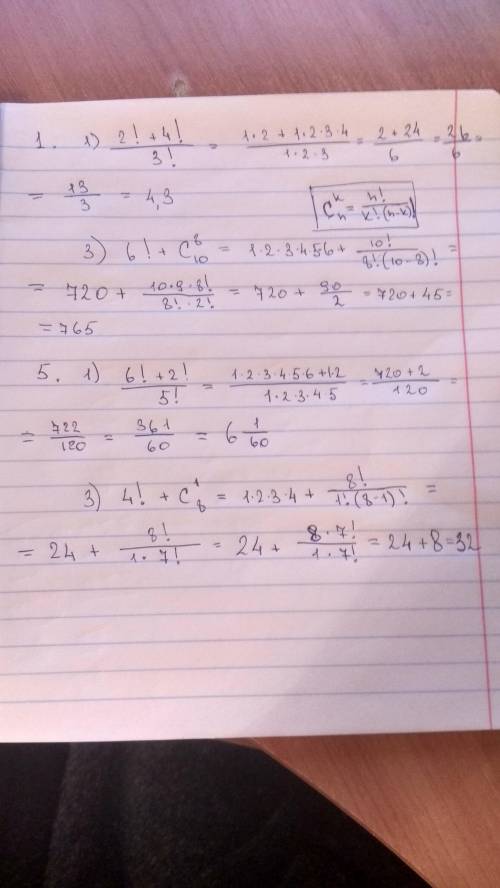 1. 1) (2! + 4!)/3! = (1·2 + 1·2·3·4)/(1·2·3) = (2 + 24)/6 = 26/6 =
= 13/3 = 4,3 C_n^k = n!/(k!·(n-k)!)
3) 6! + C_10^8 = 1·2·3·4·5·6 + 10!/(8!·(10-8)!) =
= 720 + (10·9·8!)/(8!·2!) = 720 + 90/2 = 720 + 45 =
= 765
5. 1) (6! + 2!)/5! = (1·2·3·4·5·6 + 1·2)/(1·2·3·4·5) = (720 + 2)/120 =
= 722/120 = 361/60 = 6 1/60
3) 4! + C_8^1 = 1·2·3·4 + 8!/(1!·(8-1)!) =
= 24 + 8!/(1·7!) = 24 + (8·7!)/(1·7!) = 24 + 8 = 32